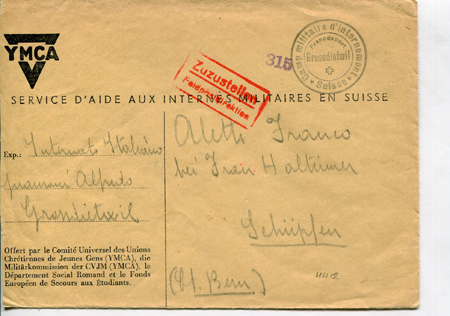 YMCA
Zuzustellen
Feldpostdirektion
315
Camp militaire d'internement
Franc de port
Grossdietwil
Suisse
SERVICE D'AIDE AUX INTERNÉS MILITAIRES EN SUISSE
Exp.: Internato Italiano
Alfredo
Grossdietwil
Aletti Franco
bei Frau Haltimer
Schüpfen
(Ct. Bern)
Offert par le Comité Universel des Unions
Chrétiennes de Jeunes Gens (YMCA), die
Militärkommission der CVJM (YMCA), le
Département Social Romand et le Fonds
Européen de Secours aux Étudiants.